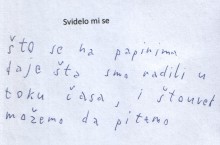 Svidelo mi se
što se na papirima
daje šta smo radili u
toku časa, i štouvet
možemo da pitamo